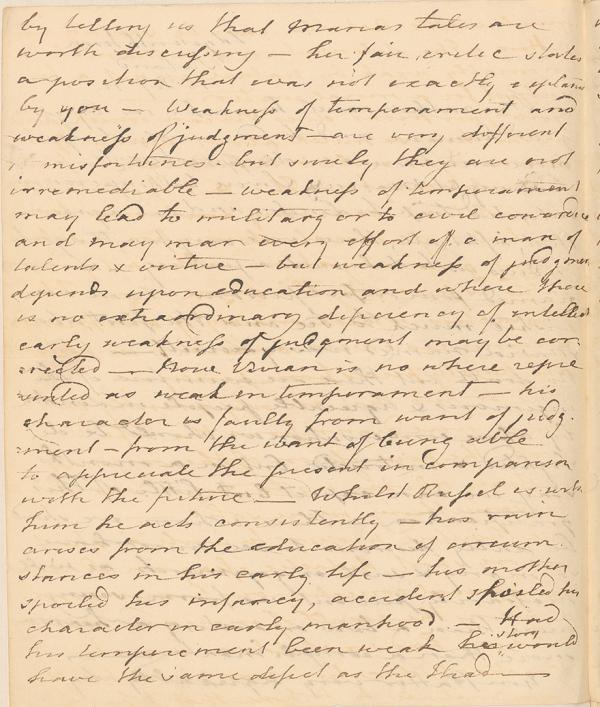 by telling us that Marias tales are
worth discussing – her fair critic states
a position that was not exactly explained
by you – Weakness of temperament and
weakness of judgment – are very different
misfortunes. but surely they are not
irremediable – weakness of temperament
may lead to military or to civil cowardice
and may mar every effort of a man of
talents & virtue – but weakness of judgment
depends upon education and where there
is no extraordinary deficiency of intellect
early weakness of judgment may be cor-
rected – Now Vivian is no where repre
sented as weak in temperament – his
character is faulty from want of judg-
ment – from the want of being able
to appreciate the present in comparison
with the future – Whilst Russel is with
him he acts consistently – his ruin
arises from the education of circum-
stances in his early life – his mother
spoiled his infancy, accident spoiled his
character in early manhood – Had
his temperement been weak his story would
have the same defect as the